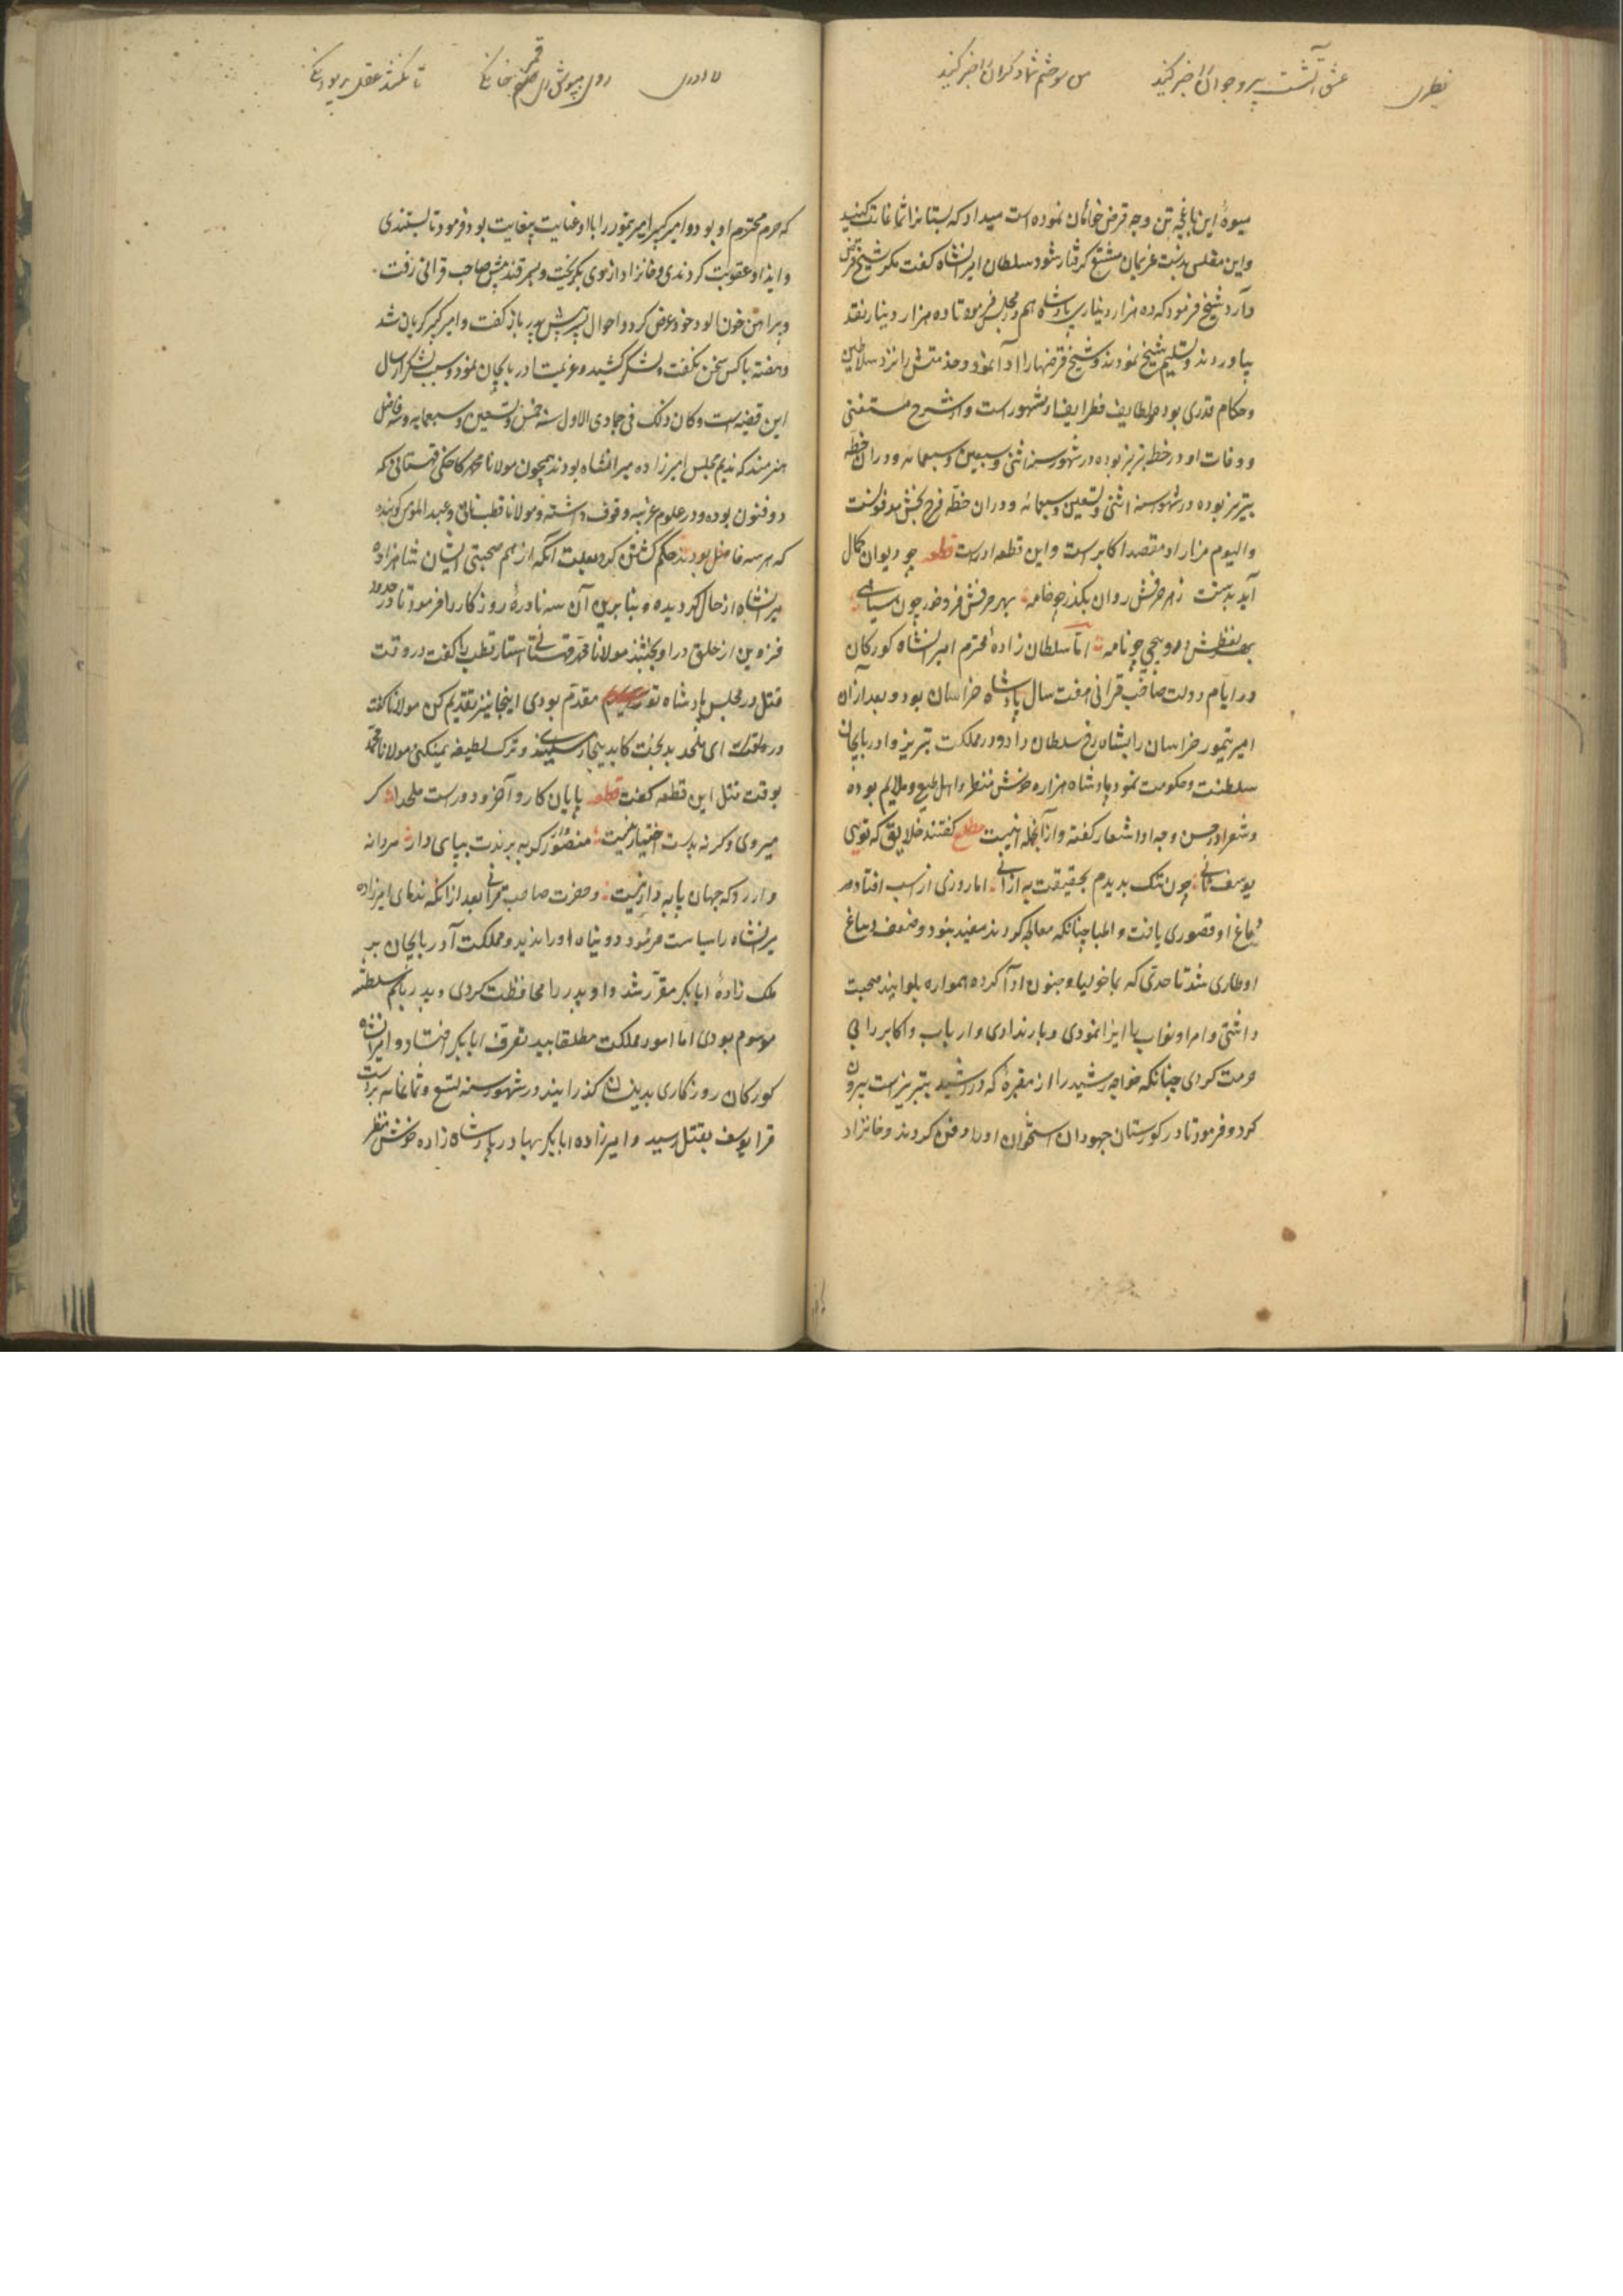 نظیری
عشق آتشست پیر و جوان را خبر کنید
من سوختم شما دگران را خبر کنید
میوهٔ این باغچه تن وجه قرض خواهان نموده است میداد که بستانرا تمام غارت کنید
واین مفلس بدست غریمان مشنع گرفتار شود سلطان امیرانشاه گفت مگر شیخ قرض
دارد شیخ فرمود که ده هزار دیناری پادشاه هم در مجلس فرمود تا ده هزار دینار نقد
بیاوردند و تسلیم شیخ نمودند و شیخ قرضها را ادا نمود و خدمتش را نزد سلاطین
وحکام قدری بوده و لطایف ظرایف او مشهور است و از شرح مستغنی
ووفات او در خطه تبریز بوده در شهور سنه اثنی وسبعین وسبعمائه ودران خطه
بتبریز بوده در شهور سنه اثنی وتسعین وسبعمائه ودران خطه فرح بخش مدفونست
والیوم مزار او مقصد اکابر است واین قطعه اوراست قطعه چو دیوان کمال
آید بدست ز هر حرفش روان بگذر چو خامه بهر حرفش فرو رو چون سیاهی
بهر لفظش مرو هیچی چو نامه اما سلطان زادهٔ محترم امیرانشاه کورکان
در ایام دولت صاحب قرانی هفت سال پادشاه خراسان بود وبعد ازان
امیر تیمور خراسان را بشاهرخ سلطان داد و در مملکت تبریز وادربایجان
سلطنت وحکومت نمود پادشاه هزاره خوش منظر واهل طبع وملایم بوده
وشعرا در حسن وجه او اشعار گفته وازانجمله اینست مطلع گفتند خلایق که تویی
یوسف ثانی چون نیک بدیدم بحقیقت به ازانی اما روزی از اسب افتاد در
دماغ او قصوری یافت واطبا چنانکه معالجه کردند مفید نبود وضعف دماغ
او طاری شد تا حدی که بماخولیا وجنون ادا کرد همواره بلوایند صحبت
داشتی وامرا ونواب را ایذا نمودی وبار ندادی وارباب واکابر را بی
حرمت کردی چنانکه خواجه رشید را از مقبرهٔ که در رشیدیه تبریز است بیرون
کرد وفرمود تا در کورستان جهودان استخوان اورا دفن کردند وخانزاد
تا نکشد عقل بر بود
که حرم محترم او بود وامیر کبیر امیر تیمور را با او عنایت بیغایت بود فرمود تا بستندی
وایذا وعقوبت کردندی وخانزاد ازوی بگریخت وبسمرقند پیش صاحب قرانی رفت
وپیراهن خون الود خود عرض کرد واحوال پریشان پدر باز گفت وامیر کبیر گریان شد
وهفته با کس سخن نگفت ولشکر کشید وعزیمت ادربایجان نمود وسبب لشکر ارسال
این قضیه است وکان ذلک فی جمادی الاول سنه خمس وتسعین وسبعمایه وسه فاضل
هنرمند که ندیم مجلس امیرزاده میرانشاه بودند همچون مولانا محمد کاخکی قهستانی که
ذوفنون بوده ودر علوم غریبه وقوف داشته ومولانا قطب نائی وعبد المومن گوینده
که هر سه فاضل بودند حکم کشتن کرد بعلت آنکه از هم صحبتی ایشان شاهزاده
میرانشاه از حال گردیده وبنا برین آن سه نادرهٔ روزگار را فرمود تا در حدود
قزوین از حلق در آویختند مولانا محمد قهستانی استاد قطب را گفت در وقت
قتل در مجلس پادشاه تو مقدم بودی اینجا نیز تقدیم کن مولانا گفت
در واقع ای ملحد بدبخت کار بدینجا رسیده وترک لطیفه نمیکنی مولانا محمد
بوقت قتل این قطعه گفت قطعه پایان کار وآخر دور است ملحدا گر
میروی وگرنه بدست اختیار نیست منصور گر به برندت بپای دار مردانه
دار رو که جهان پایه دار نیست وحضرت صاحب قرانی بعد ازانکه ندمای امیرزاده
میرانشاه را سیاست فرمود دو نیاه اورا ندید ومملکت آدربایجان بر
ملک زادهٔ ابابکر مقرر شد واو پدر را محافظت کردی وپدر باسم سلطنه
موسوم بودی اما امور مملکت مطلقا بید تصرف ابابکر افتاد و امیرانشاه
کورکان روزکاری بدینسان گذرانید در شهور سنه تسع وثمانمائه بر دست
قرا یوسف بقتل رسید وامیرزاده ابابکر بهادر پادشاه زاده خوش منظر